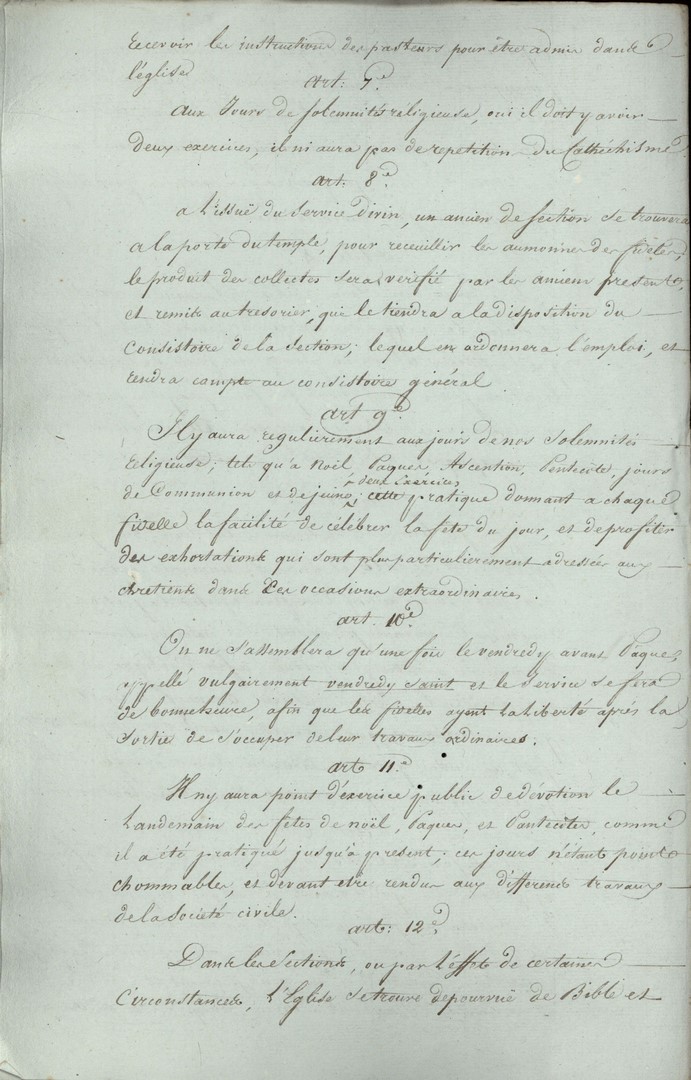 recevoir les instructions des pasteurs pour être admis dans
l'église
art: 7e
aux Jours de solemnités religieuse, oui il doit y avoir
deux exercices, il ni aura pas de repetition du Cathéchisme
art: 8e
a L'issuë du service divin, un ancien de section se trouvera
a la porte du temple, pour receuillir les aumonnes des fidelles,
le produit des collectes sera verifié par les anciens presents,
et remis au tresorier, qui le tiendra a la disposition du
Consistoire de la Section; lequel en ordonnera l'emploi, et
rendra compte au consistoire général
art 9e
Il y aura regulierement aux jours de nos solemnités
religieuse; tels qu'a Noël, Paques, Ascention, Pentecôte, jours
deux Exercices
de Communion et de jeûne; cette pratique donnant a chaque
fidelle la facilité de célébrer la fete du jour, et de profiter
des exhortations qui sont plus particulierement adressées aux
chretiens dans Ces occasions extraordinaires.
art. 10e
On ne s'assemblera qu'une fois le vendredy avant Paques,
appellé vulgairement vendredy saint et le Service se fera
de bonne heure, afin que les fidelles ayent la liberté après la
sortie de s'occuper de leur travaux ordinaires.
art 11e
Il ny aura point d'exercice public de dévotion le
Landemain des fetes de noël, Paques, et Pantecôtes, comme
il a été pratiqué jusqu'a present; ces jours n'étant points
chommables, et devant etre rendus aux differents travaux
de la Societé civile.
art: 12e
Dans les Sections, ou par L'effet de certaines
Circonstances, L'Eglise se trouve depourvuë de Bible et